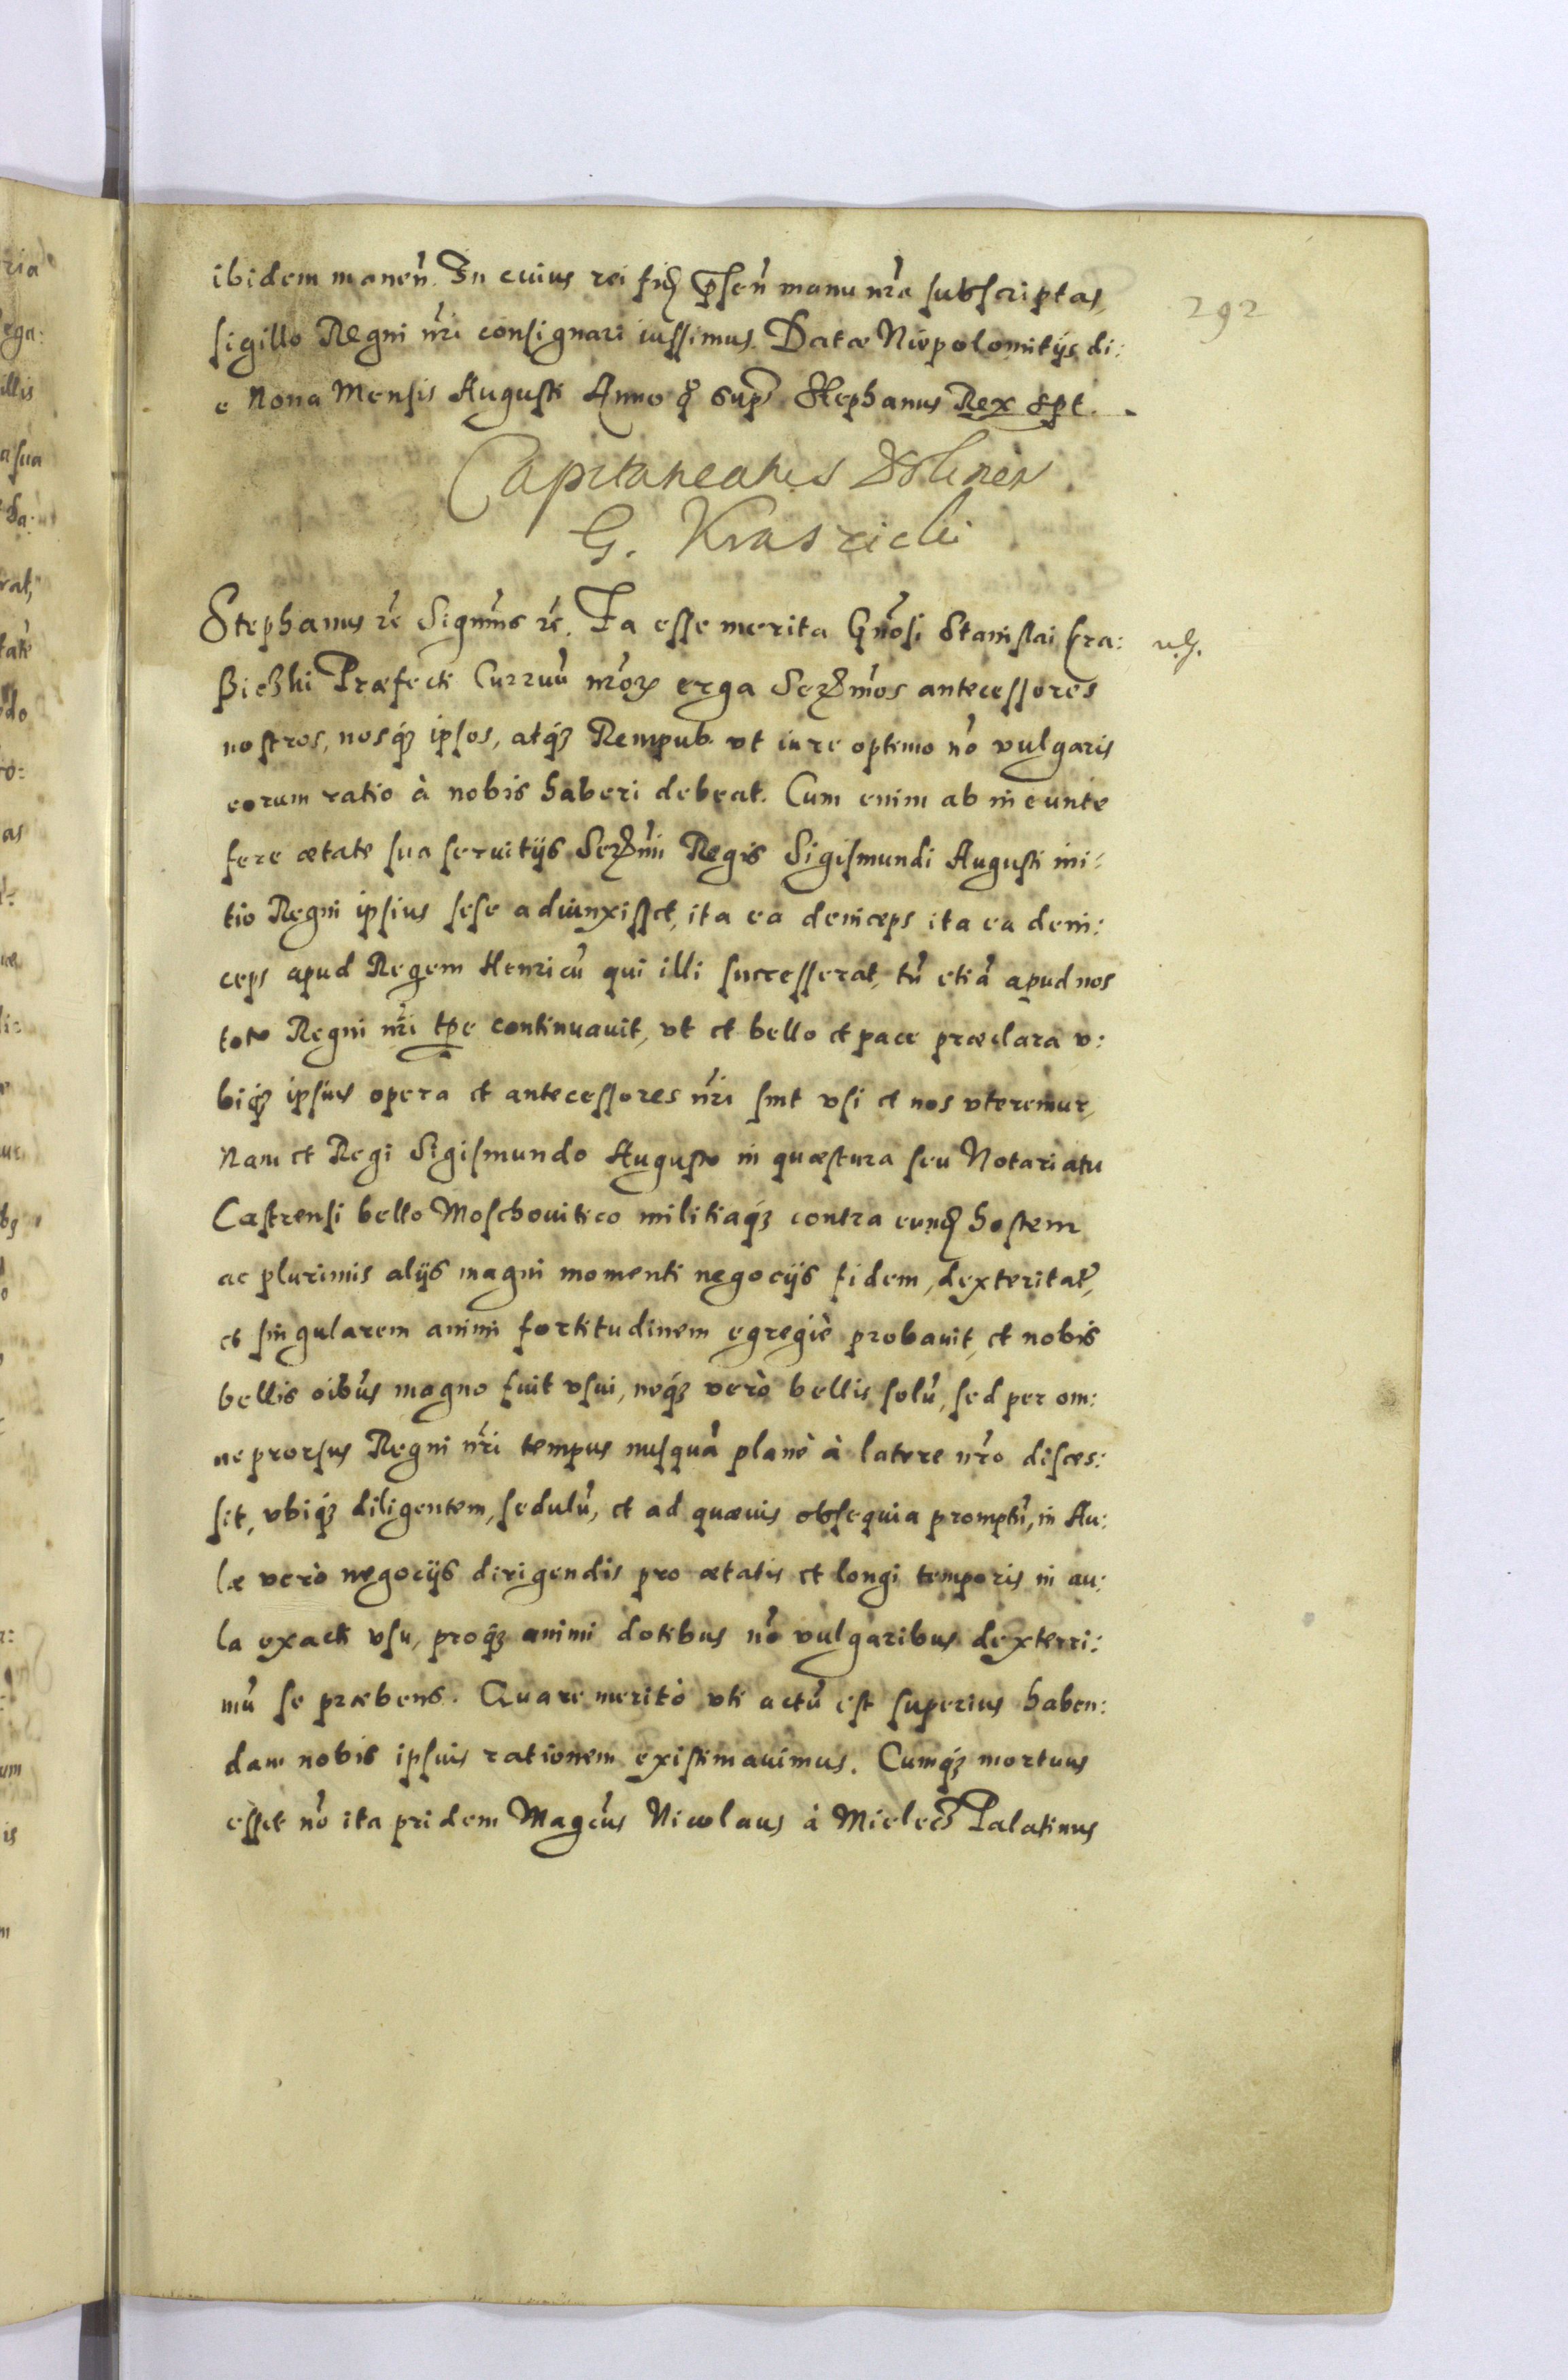 292
ibidem maneñ. In cuius rei fid p̃señ manu nr̃a subscriptas,
sigillo Regni nr̃i consignari iussimus. Datæ Niepolomitijs di:
e Nona Mensis Augusti Anno q̃ sup̃ Stephanus Rex sp̃t.
Capitaneatus
G. Krasicki
Stephanus rẽ Signm̃s rẽ. Ea esse merita Gñosi Stanislai Cra:
ßiczki Præfecti Curruũ nr̃oꝝ erga Serẽmos antecessores
nostros, nosq̃ ipsos, atq̃ Rempub. vt iure optimo nõ vulgaris
eorum ratio à nobis haberi debeat. Cum enim ab ineunte
fere ætate sua seruitijs Serẽmi Regis Sigismundi Augusti ini:
tio Regni ipsius sese adiunxisset, ita ea deinceps ita ea dein:
ceps apud Regem Henricũ qui illi successerat, tũ etiã apud nos
toto Regni nr̃i tp̃e continuauit, vt et bello et pace præclara v:
biq̃ ipsius opera et antecessores nr̃i sint vsi et nos vteremur,
Nam et Regi Sigismundo Augusto in quæstura seu Notariatu
Castrensi bello Moschouitico militiaq̃ contra eund hostem
ac plurimis alijs magni momenti negocijs fidem, dexteritat̃,
et singularem animi fortitudinem egregiè probauit, et nobis
bellis oĩbus magno fuit vsui, neq̃ verò bellis solũ, sed per om:
ne prorsus Regni nr̃i tempus nusquã planè à latere nr̃o disces:
sit, vbiq̃ diligentem, sedulũ, et ad quæuis obsequia promptũ, in Au:
læ verò negocijs dirigendis pro ætatis et longi temporis in au:
la exacti vsu, proq̃ animi dotibus nõ vulgaribus dexterri:
mũ se præbens. Quare meritò vti actũ est superius haben:
dam nobis ipsius rationem existimauimus. Cumq̃ mortuus
esset nõ ita pridem Magc̃us Nicolaus à Mielec̃ Palatinus